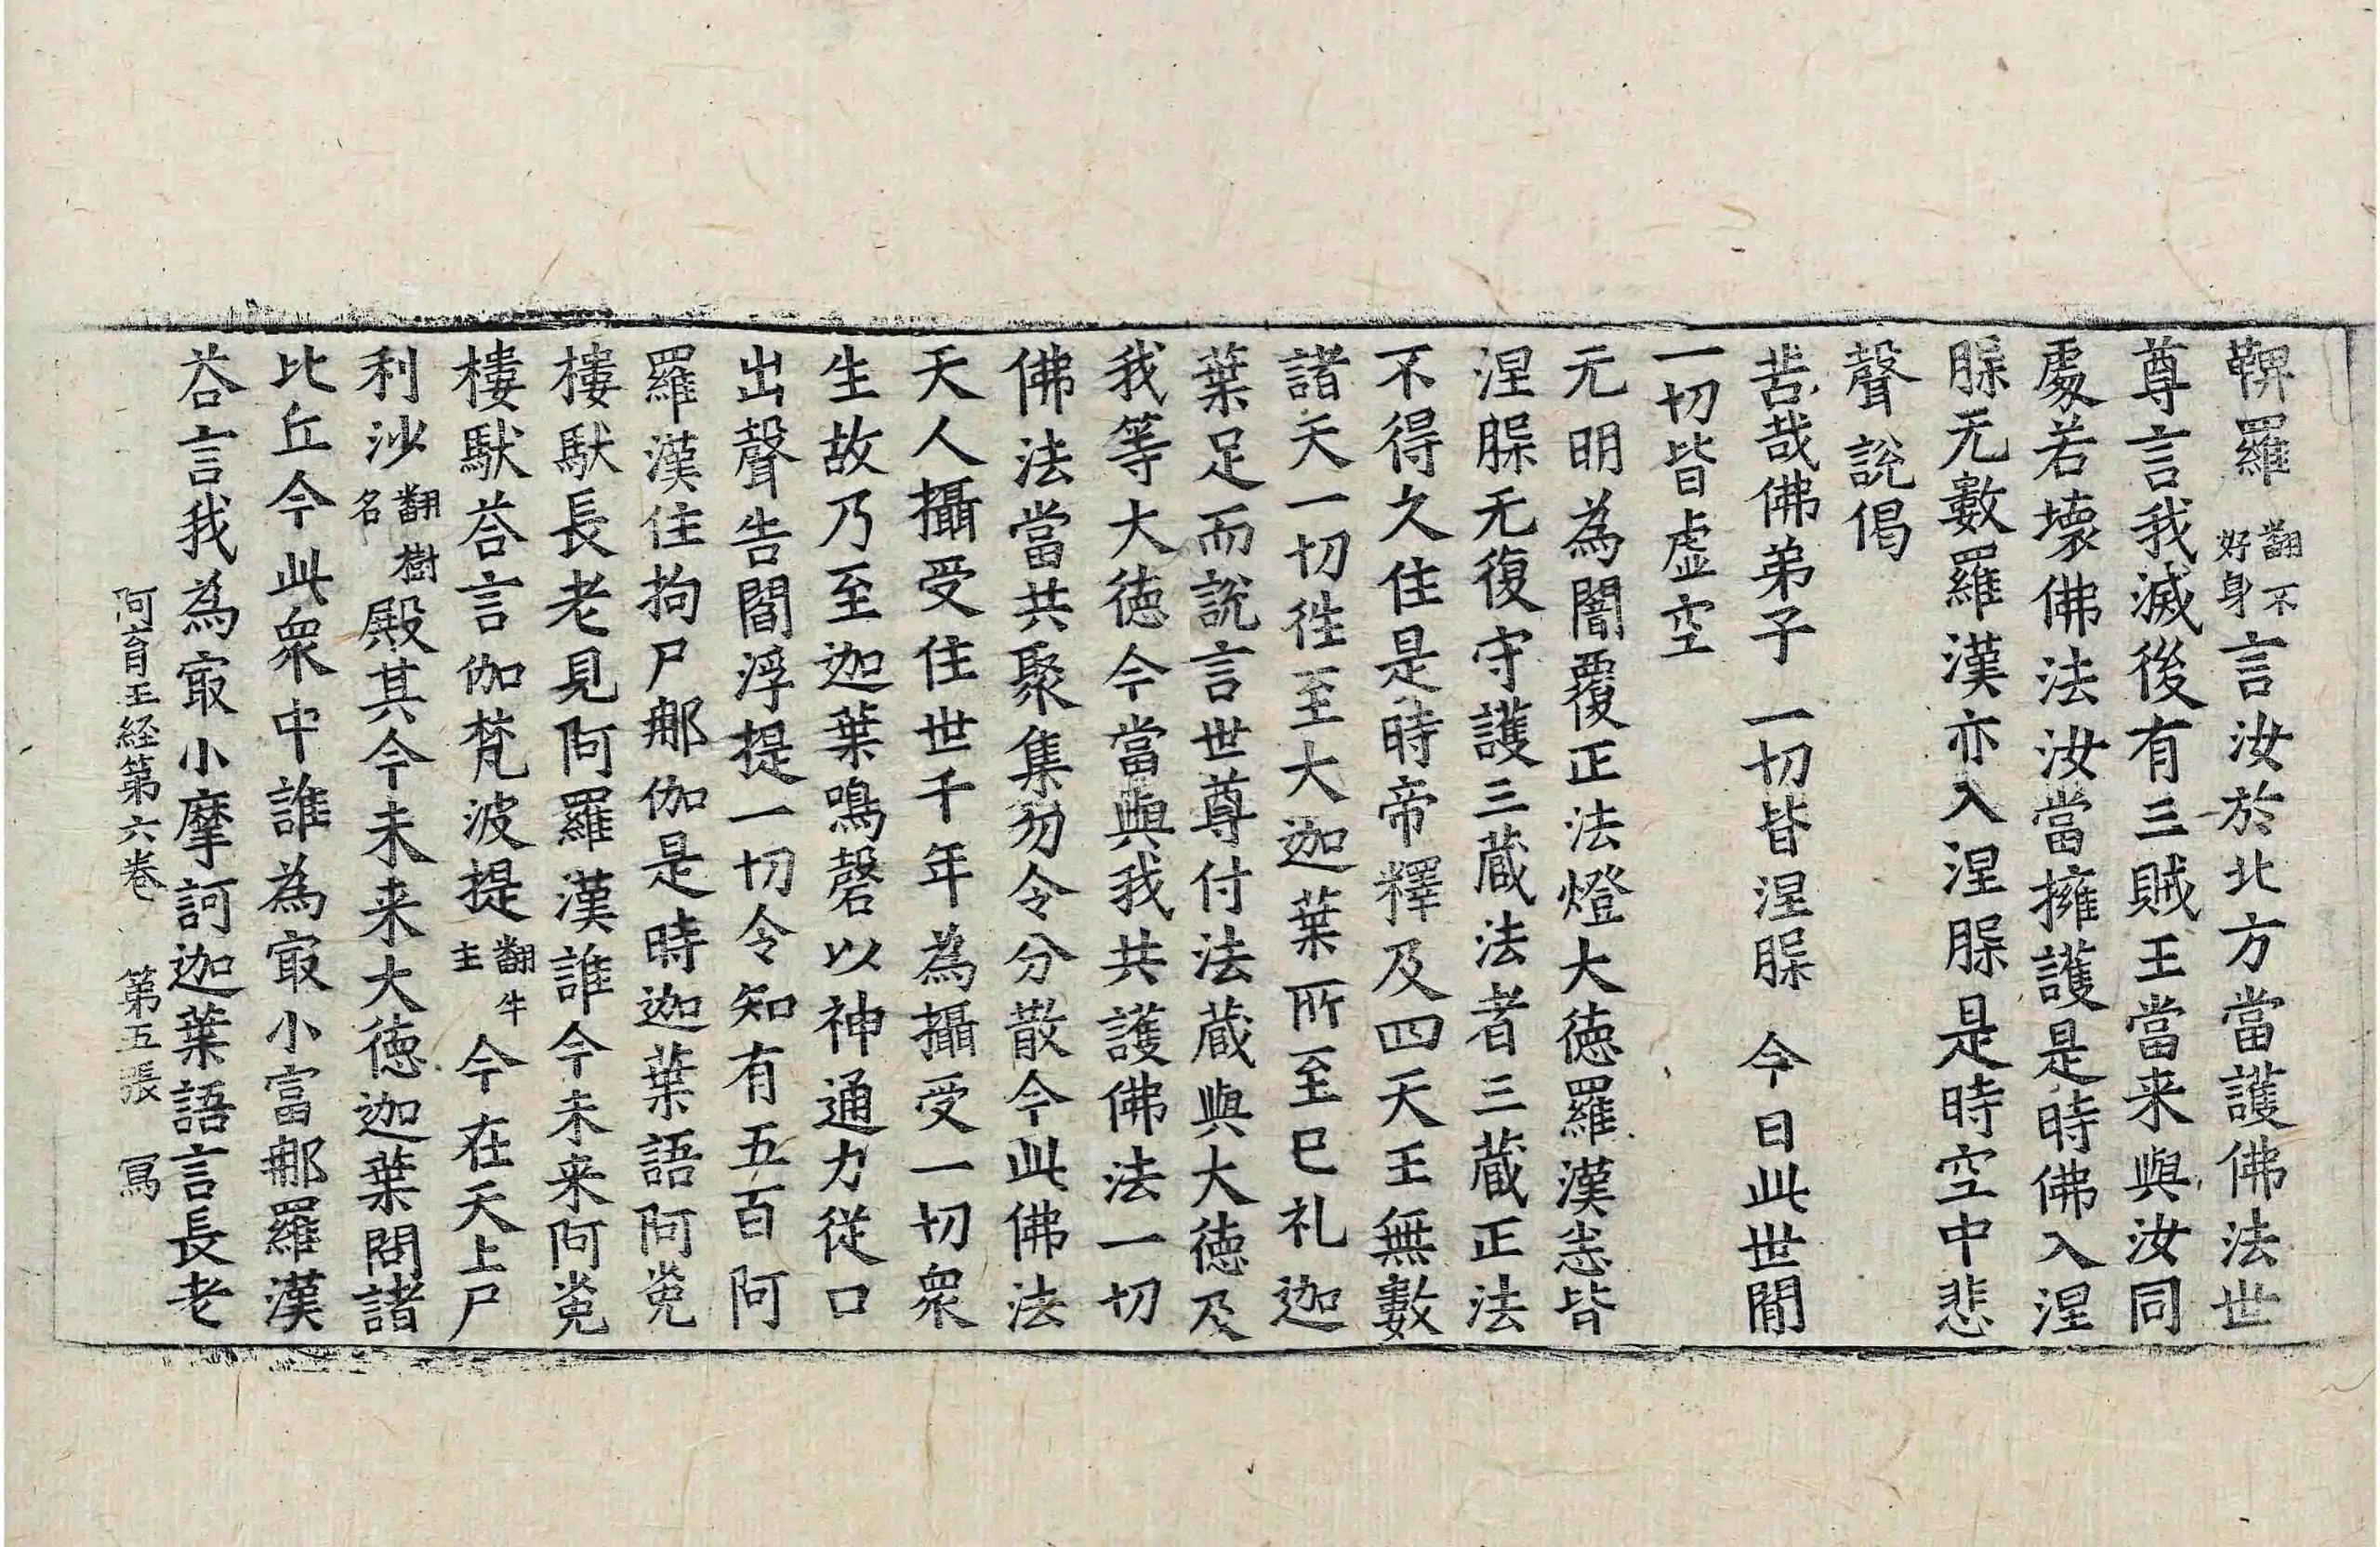 鞞羅翻不好身言汝於北方當護佛法世
尊言我滅後有三賊王當来與汝同
處若壞佛法汝當擁護是時佛入涅
槃无數羅漢亦入涅槃是時空中悲
聲說偈
苦哉佛弟子 一切皆涅槃 今日此世閒
一切皆虛空
无明為闇覆正法燈大德羅漢悉皆
涅槃无復守護三蔵法者三蔵正法
不得久住是時帝釋及四天王無數
諸天一切徃至大迦葉所至已礼迦
葉足而說言世尊付法蔵與大德及
我等大德今當與我共護佛法一切
佛法當共聚集勿令分散今此佛法
天人攝受住世千年為攝受一切衆
生故乃至迦葉鳴磬以神通力従口
出聲告閻浮提一切令知有五百阿
羅漢住拘尸郍伽是時迦葉語阿㝹
樓馱長老見阿羅漢誰今未来阿㝹
樓馱荅言伽梵波提翻牛主今在天上尸
利沙翻樹名殿其今未来大德迦葉問諸
比丘今此衆中誰為㝡小富郍羅漢
荅言我為㝡小摩訶迦葉語言長老
阿育王経第六巻 第五張 冩